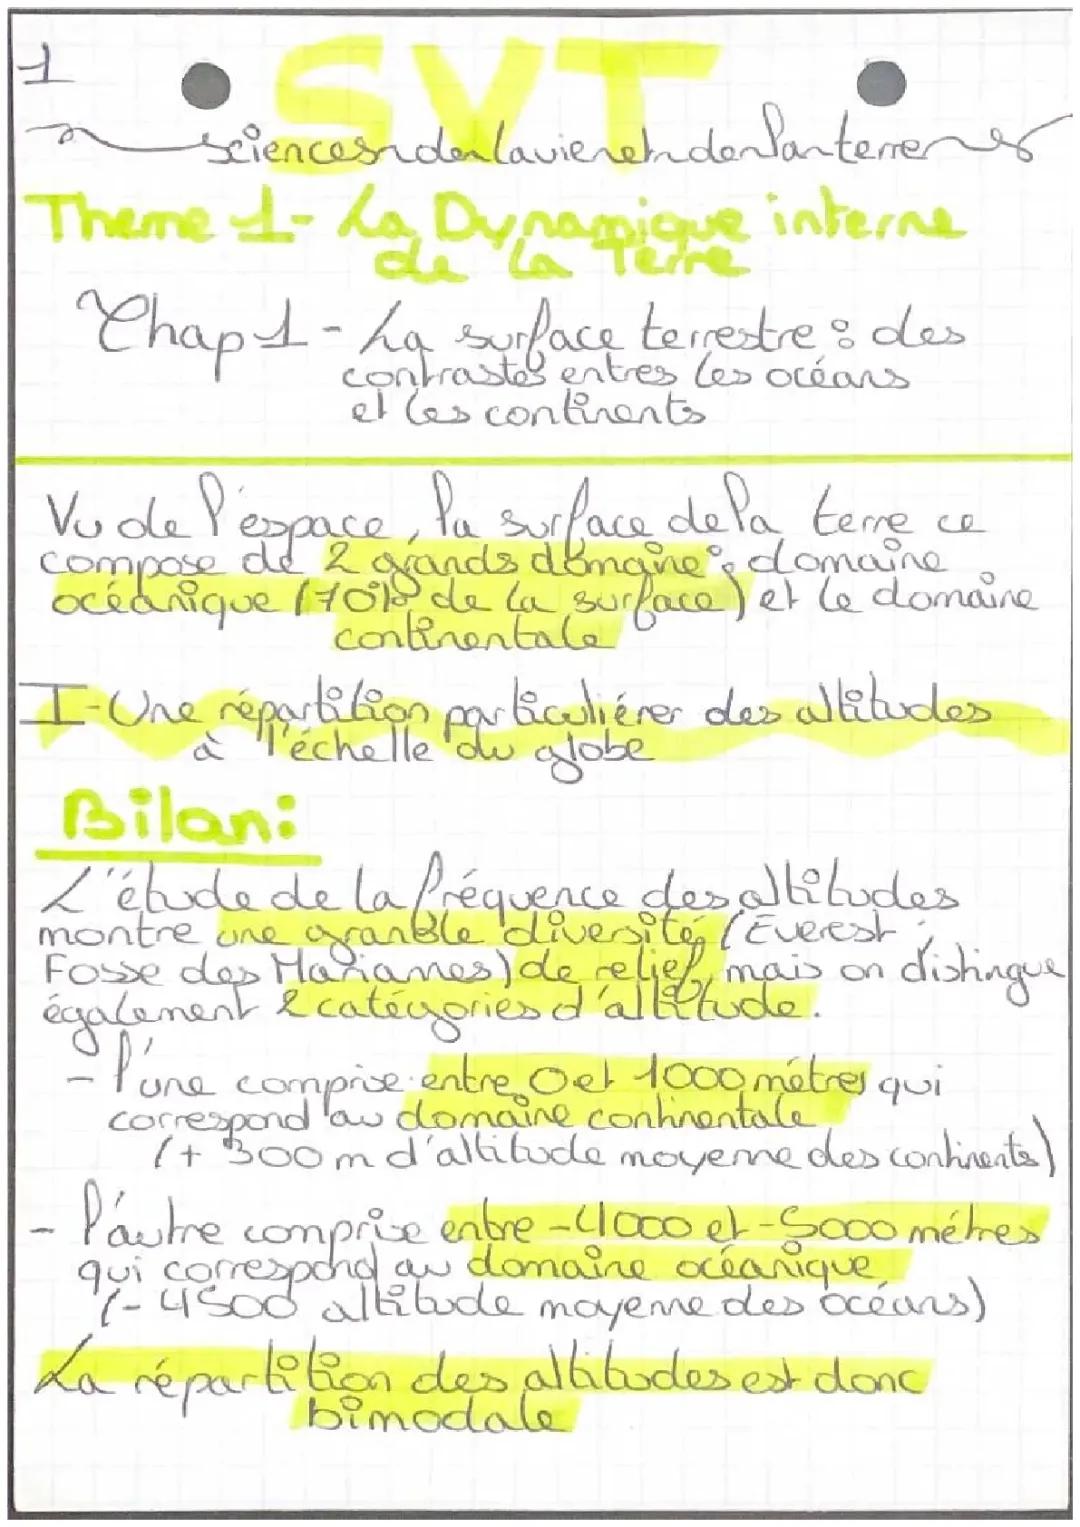 1
SVT
sciences de la vie et de la terre
Theme 1- La Dynamique interne
de la Terre
Chap 1 - La surface terrestre : des
contrastes entres les océans
et les continents
Vu de l'espace, la surface de la terre ce
compose de 2 grands domaine : domaine
océanique (70% de la surface) et le domaine
continentale
I-Une répartition particuliérer des altitudes
à l'échelle du globe
Bilan:
L'étude de la fréquence des altitudes
montre une grande diversité (Everest,
Fosse des Mariannes) de relief, mais on distingue
également 2 catégories d'altitude.
- l'une comprise entre 0 et 1000 métres qui
correspond au domaine continentale
(+ 300 m d'altitude moyenne des continents)
- l'autre comprise entre -4000 et -5000 métres
qui correspond au domaine océanique
(- 4500 altitude moyenne des océans)
La répartition des altitudes est donc
bimodale